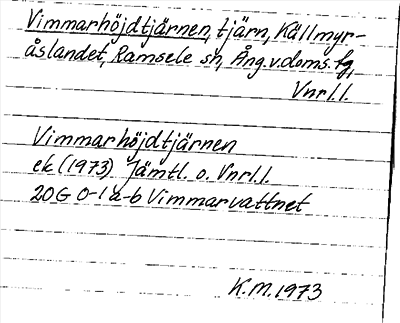 Vimmarhöjdtjärnen, tjärn, Källmyr-
åslandet, Ramsele sn, Ång.v.doms.fg,
Vnrl.l.
Vimmarhöjdtjärnen
ek (1973) Jämtl. o. Vnrl.l.
20G 0-1 a-b Vimmarvattnet
K.M. 1973